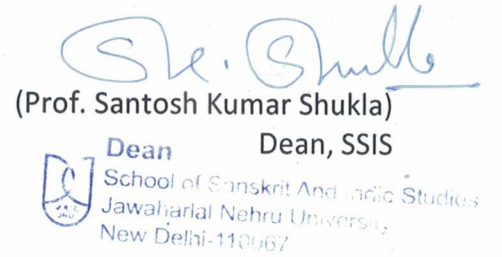 S.K. Shukla
(Prof. Santosh Kumar Shukla)
Dean, SSIS
Dean
School of Sanskrit And Indic Studies
Jawaharlal Nehru University,
New Delhi-110067
JNU